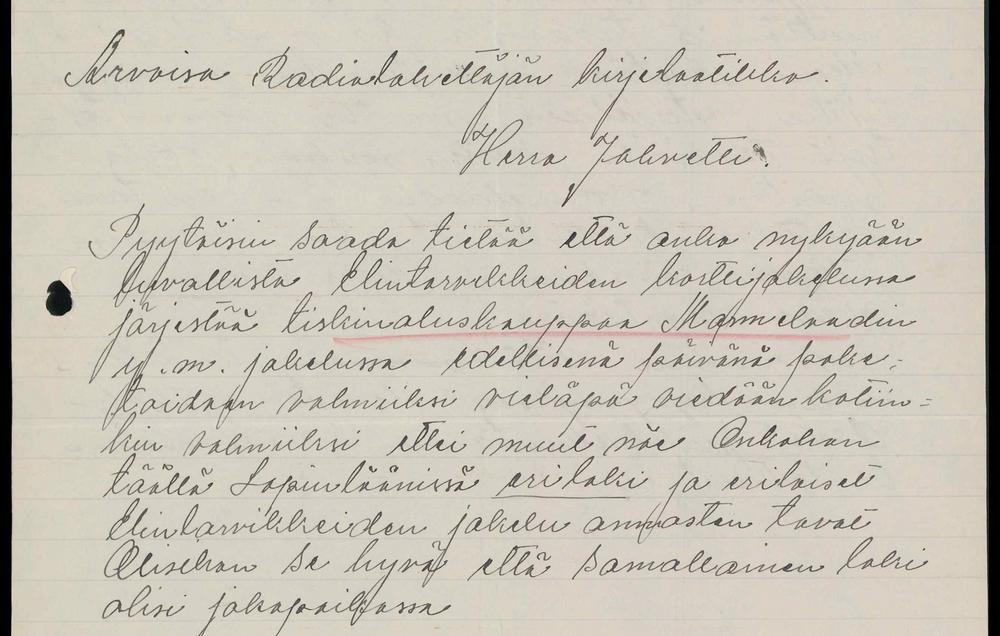 Arvoisa Radiokalvettäjän kirjelaatikko.
Herra Jahvetti.
Pyytäisin saada tietää että onko nykyään
luvallista Elintarvikkeiden korttijakelussa
järjestää tiskinaluskauppaa Marmelaadin
y.m. jakelussa edellisenä päivänä pake-
toidaan valmiiksi vieläpä viedään kotiin-
kin valmiiksi ettei muut näe Onkohan
täällä Lapinläänissä eri laki ja erilaiset
Elintarvikkeiden jakelu annosten tavat
Olisikan se hyvä että samallainen laki
olisi jokapaikassa